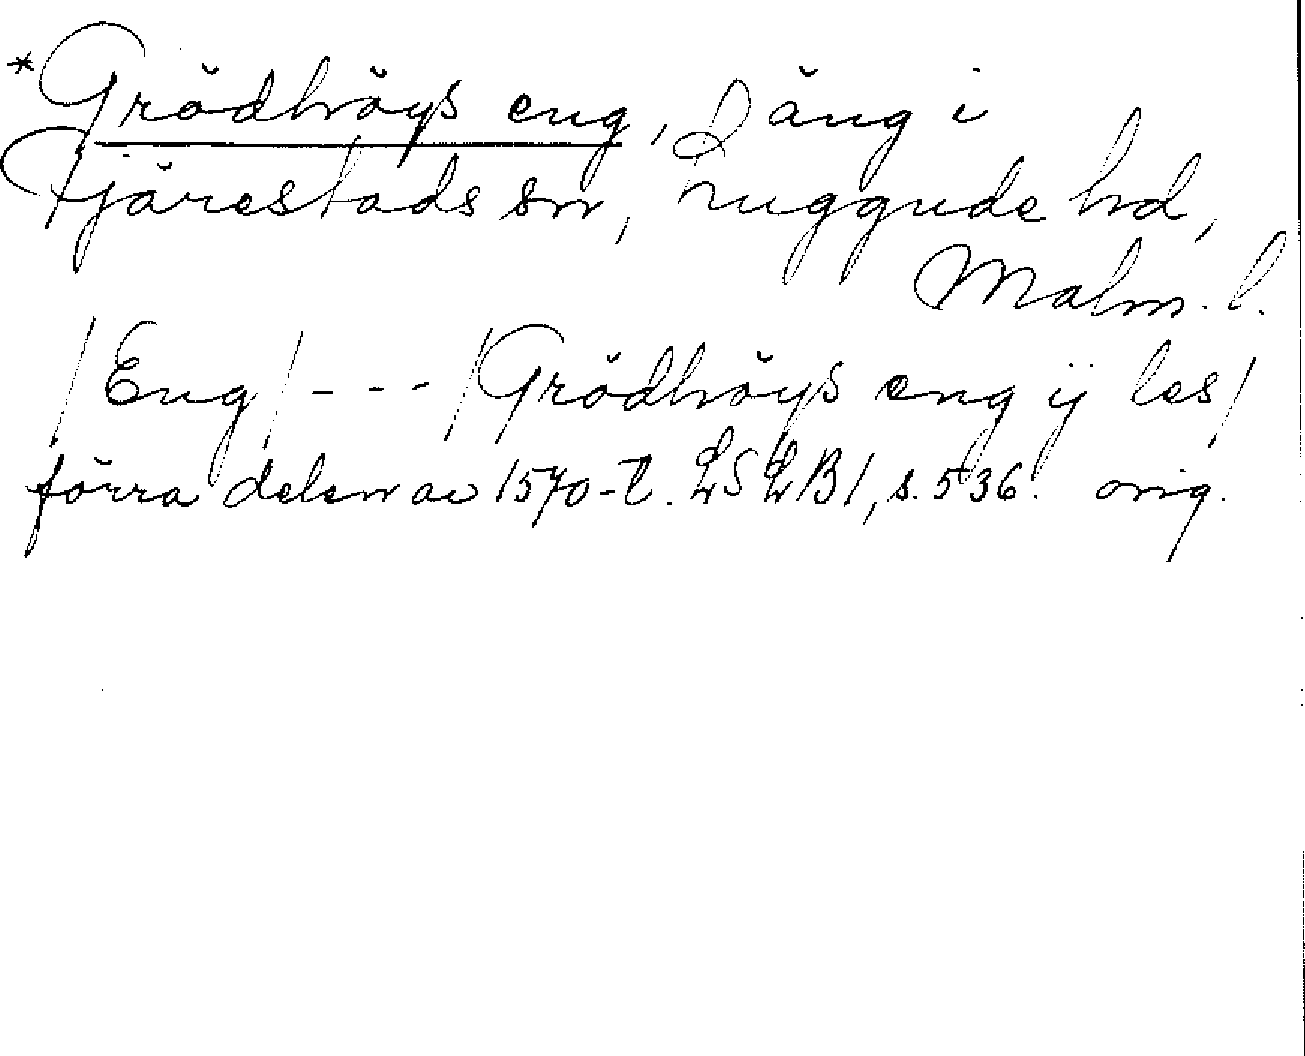 *Grödhöys eng, äng i
Fjärestads sn, Luggude hd,
Malm. l.
/Eng/ - - - /Grödhöys eng ij les/
förra delen av 1570-t. LSLB1, s. 536. orig.